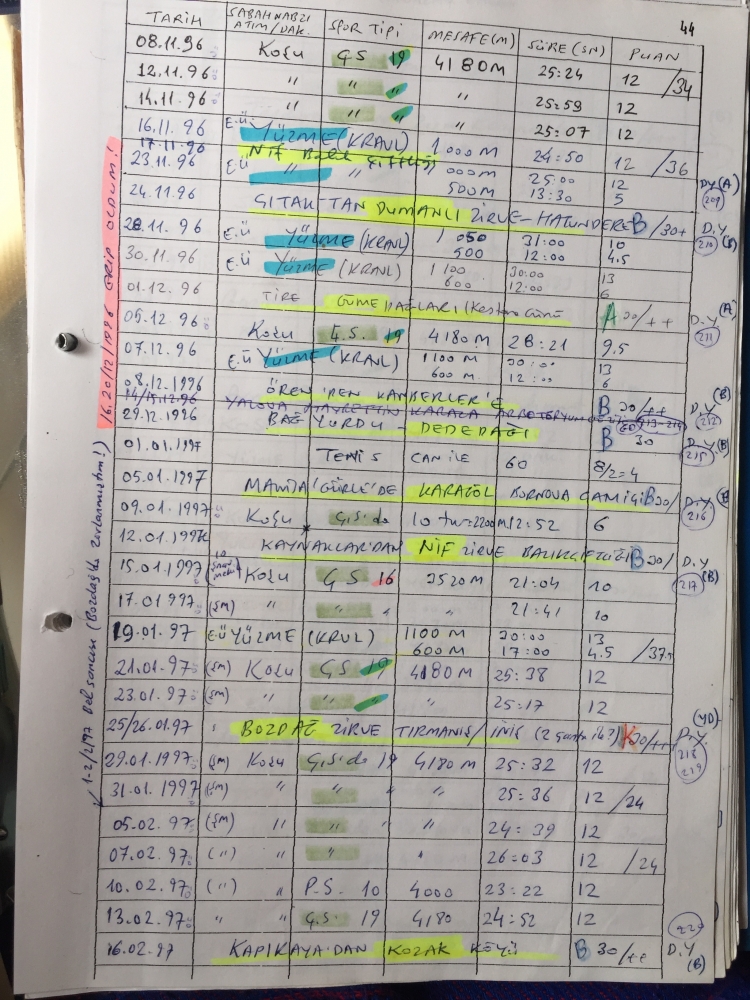 44
TARİH SABAH NABZI ATIM/DAK. SPOR TİPİ MESAFE(M) SÜRE(SN) PUAN
08.11.96 Koşu G.S 19 4180M 25:24 12 /34
12.11.96 " " " " 25:59 12
14.11.96 " " " " 25:07 12
16.11.96 E.Ü YÜZME (KRAVL) 1000 M 24:50 12 /36
17.11.96 NİF
23.11.96 E.Ü " 000M 25:00 12 D.Y (A)
500M 13:30 5 209
24.11.96 GITAK'TAN DUMANLI ZİRVE-HATUNDERE B /30+ D.Y
28.11.96 E.Ü YÜZME (KRAVL) 1050 31:00 10 210
500 12:00 4.5
30.11.96 E.Ü YÜZME (KRAVL) 1100 30:00 13
600 12:00 6
01.12.96 TİRE GÜME DAĞLARI A 30/++ D.Y (A)
05.12.96 Koşu G.S. 19 4180M 28:21 9.5 211
07.12.96 E.Ü YÜZME (KRAVL) 1100 M 30:00 13
600 M. 12:00 6
08.12.1996 ÖREN'DEN KAMBERLER'E B 30/++ D.Y (B)
14/15.12.96 YALOVA HAYRETTİN KARACA ARBORETUM 212
29.12.1996 BAĞYURDU - DEDEDAĞI B 30 D.Y (B)
215
01.01.1997 TENİS CAN İLE 60 8/2=4
05.01.1997 KARAGÖL BORNOVA ÇAMİÇİ B 30/ D.Y (B)
216
09.01.1997 Koşu G.S.da 10 tur=2200M 12:52 6
12.01.1997 KAYNAKLAR'DAN NİF ZİRVE BALIKÇIFTLİĞİ B 30/ D.Y
(B) 217
15.01.1997 Koşu G.S 16 3520M 21:04 10
17.01.1997 (ŞM) " " " " 21:41 10
19.01.97 E.Ü YÜZME (KRUL) 1100 M 30:00 13
600 M 17:00 4.5 /37.5
21.01.97 (ŞM) Koşu G.S 19 4180M 25:38 12
23.01.97 (ŞM) " " " " 25:17 12
25/26.01.97 BOZDAĞ ZİRVE TIRMANIŞ/İNİŞ K30/++ D.Y (YD)
218
219
29.01.1997 (ŞM) Koşu G.S.da 19 4180M 25:32 12
31.01.1997 (ŞM) " " " " 25:36 12 /24
05.02.97 (ŞM) " " " " 24:39 12
07.02.97 (") " " " 26:03 12 /24
10.02.97 (") " P.S. 10 4000 23:22 12
13.02.97 " " G.S. 19 4180 24:52 12
220
16.02.97 KAPIKAYA'DAN KOZAK KÖYÜ B 30/++ D.Y
(B)
16.20/12/1996 GRİP OLDUM!
1-2/2/97 Bel sancısı (Bozdağ'da zorlanmıştım!)